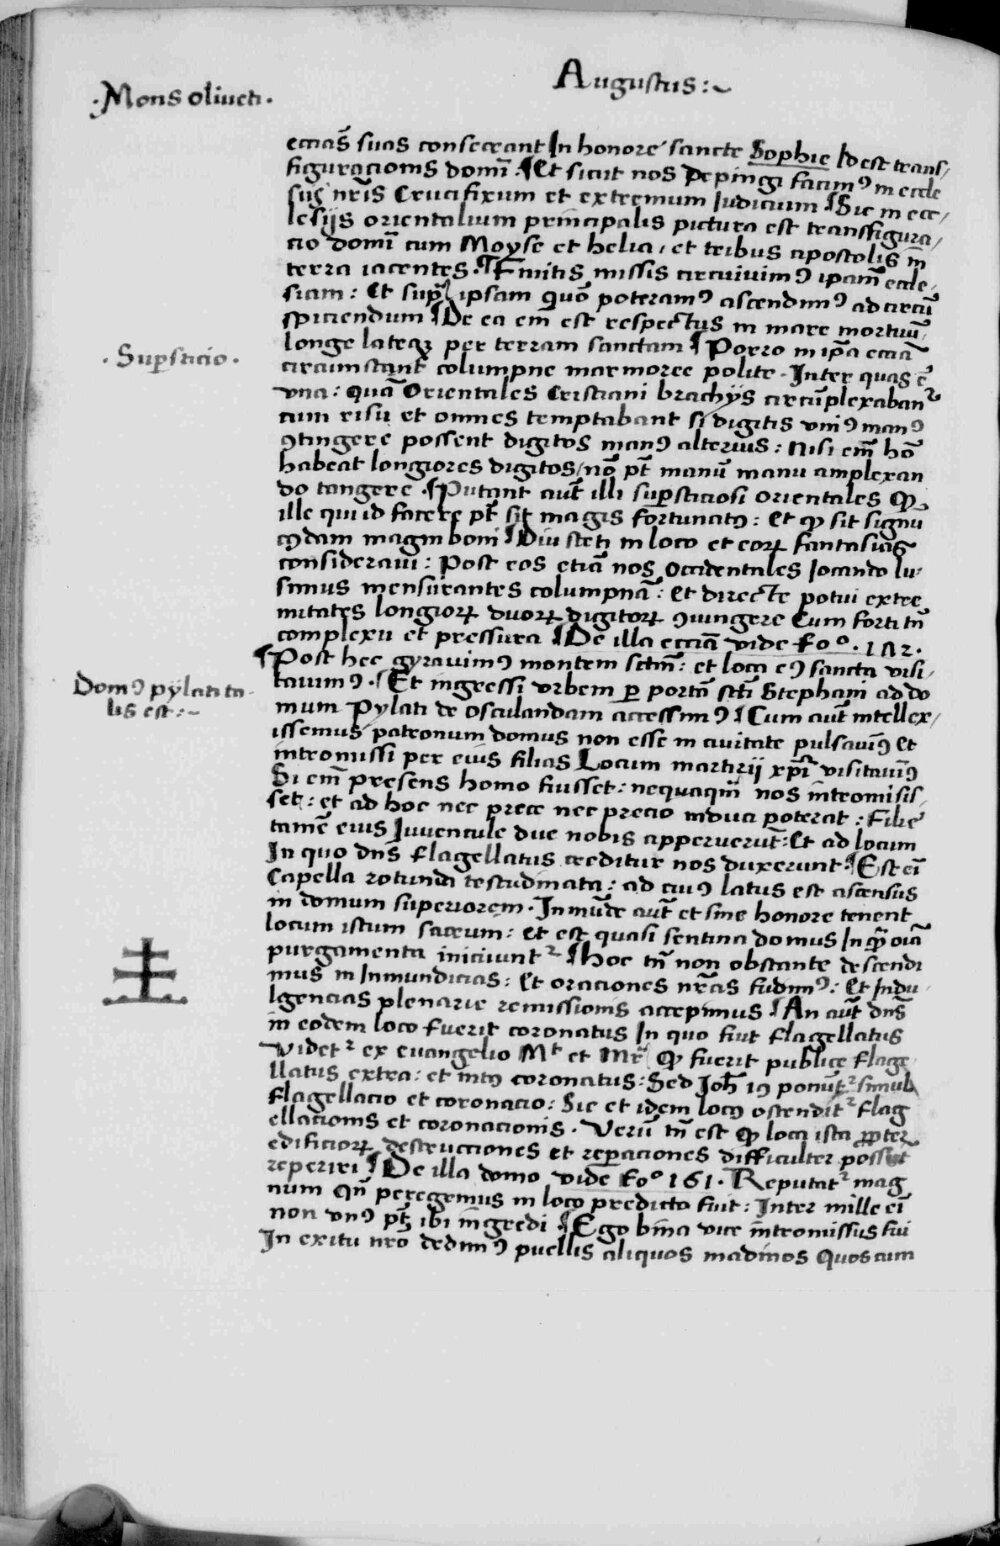 Augustus:~
·Mons oliueti·
ecciãs suas consecrant In honorē sancte Sophie Id est trans/
figuracionis domĩ. ¶Et sicut nos Depingi facimꝰ in eccle
sijs nr̃is Crucifixum et extremum Iudicium ¶Sic in ecc/
lesijs orientalium principalis pictura est transfigura/
cio domĩ cum Moyse et helia, et tribus apostolis in
terra iacentes. ¶Finitis missis circuiuimꝰ ipam̃ eccle/
siam: Et supra ipsam quõ poteramꝰ ascendimꝰ ad circũ
spiciendum ¶De ea em̃ est respectus in mare mortuũ/
longe lateqꝫ per terram sanctam ¶Porro in ip̃a ecciã
circumstant columpne marmoree polite. Inter quas ẽ
vna: quã Orientales Cristiani brachijs circũplexabantᷣ
cum risu et omnes temptabant si digitis vniꝰ manꝰ
ꝯtingere possent digitos manꝰ alterius: nisi em̃ hõ
habeat longiores digitos/nõ pt̃ manũ manu amplexan
do tangere. ¶Putant aut̃ illi suꝑsticiosi orientales ꝙ
ille qui id facere pt̃ sit magis fortunatꝰ: Et ꝙ sit signũ
cuꝰdam magni boni ¶Diu steti in loco et eoꝝ fantasias
consideraui: Post eos etiã nos Occidentales Iocando lu/
simus mensurantes columpnã: Et directe potui extre
mitates longioꝝ duoꝝ digitoꝝ ꝯiungere Cum forti tñ
complexu et pressura ¶De illa ecciã vide foº. 172.
·Suꝑsticio·
¶Post hec gyrauimꝰ montem sctm̃: et loca eꝰ sancta visi/
tauimꝰ. ¶Et ingressi vrbem ꝑ portã scti Stephani ad do
mum Pylati de Osculandam accessimꝰ ¶Cum aut̃ intellex/
issemus patronum domus non esse in ciuitate pulsauimꝰ Et
intromissi per eius filias Locum martirij xp̃i visitauimꝰ
Si em̃ presens homo fuisset: nequaqm̃ nos intromisis/
set: et ad hoc nec prece nec precio induci poterat: Filie
tamẽ eius Iuuencule due nobis apperuerũt: Et ad locum
In quo dñs flagellatus creditur nos duxerunt. ¶Est eĩ
Capella rotunda testudinata: ad cuiꝰ latus est ascensus
in domum superiorem. Inmũde aut̃ et sine honore tenent
locum istum sacrum: et est quasi sentina domus In qᷓ oĩa
purgamenta iniciuntᷣ ¶Hoc tñ non obstante descendi
mus in Inmundicias: Et oraciones nr̃as fudimꝰ: Et Indu/
lgencias plenarie remissionis accepimus ¶An aut̃ dñs
in eodem loco fuerit coronatus In quo fuit flagellatus
Videtᷣ ex euangelio Mt et Mr̃ ꝙ fuerit publice flage
llatus extra: et intꝰ coronatus: Sed Ioh̃ 19 ponũtᷣ simul
flagellacio et coronacio: Sic et idem locꝰ ostenditᷣ flag
ellacionis et coronacionis. Verũ tñ est ꝙ loca ista ꝓpter
edificioꝝ destrucciones et reꝑaciones difficulter possũt
reperiri ¶De illa domo vide foº 161. Reputatᷣ mag
num qñ peregrinus in loco predicto fuit: Inter mille eĩ
non vnꝰ pt̃ ibi ingredi ¶Ego bina vice intromissus fui
In exitu nr̃o dedimꝰ puellis aliquos madinos Quos cum
Domꝰ pylati ta-
lis est:~